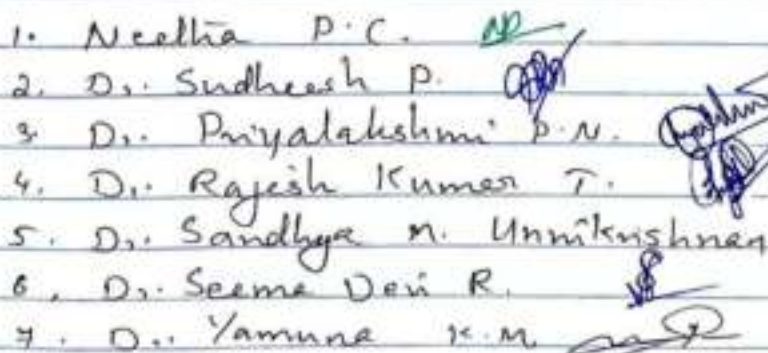 1. Neetha P.C.
2. Dr. Sudheesh P.
3. Dr. Priyalakshmi P.N.
4. Dr. Rajesh Kumar T.
5. Dr. Sandhya M. Unnikrishnan
6. Dr. Seema Devi R.
7. Dr. Yamuna K.M.